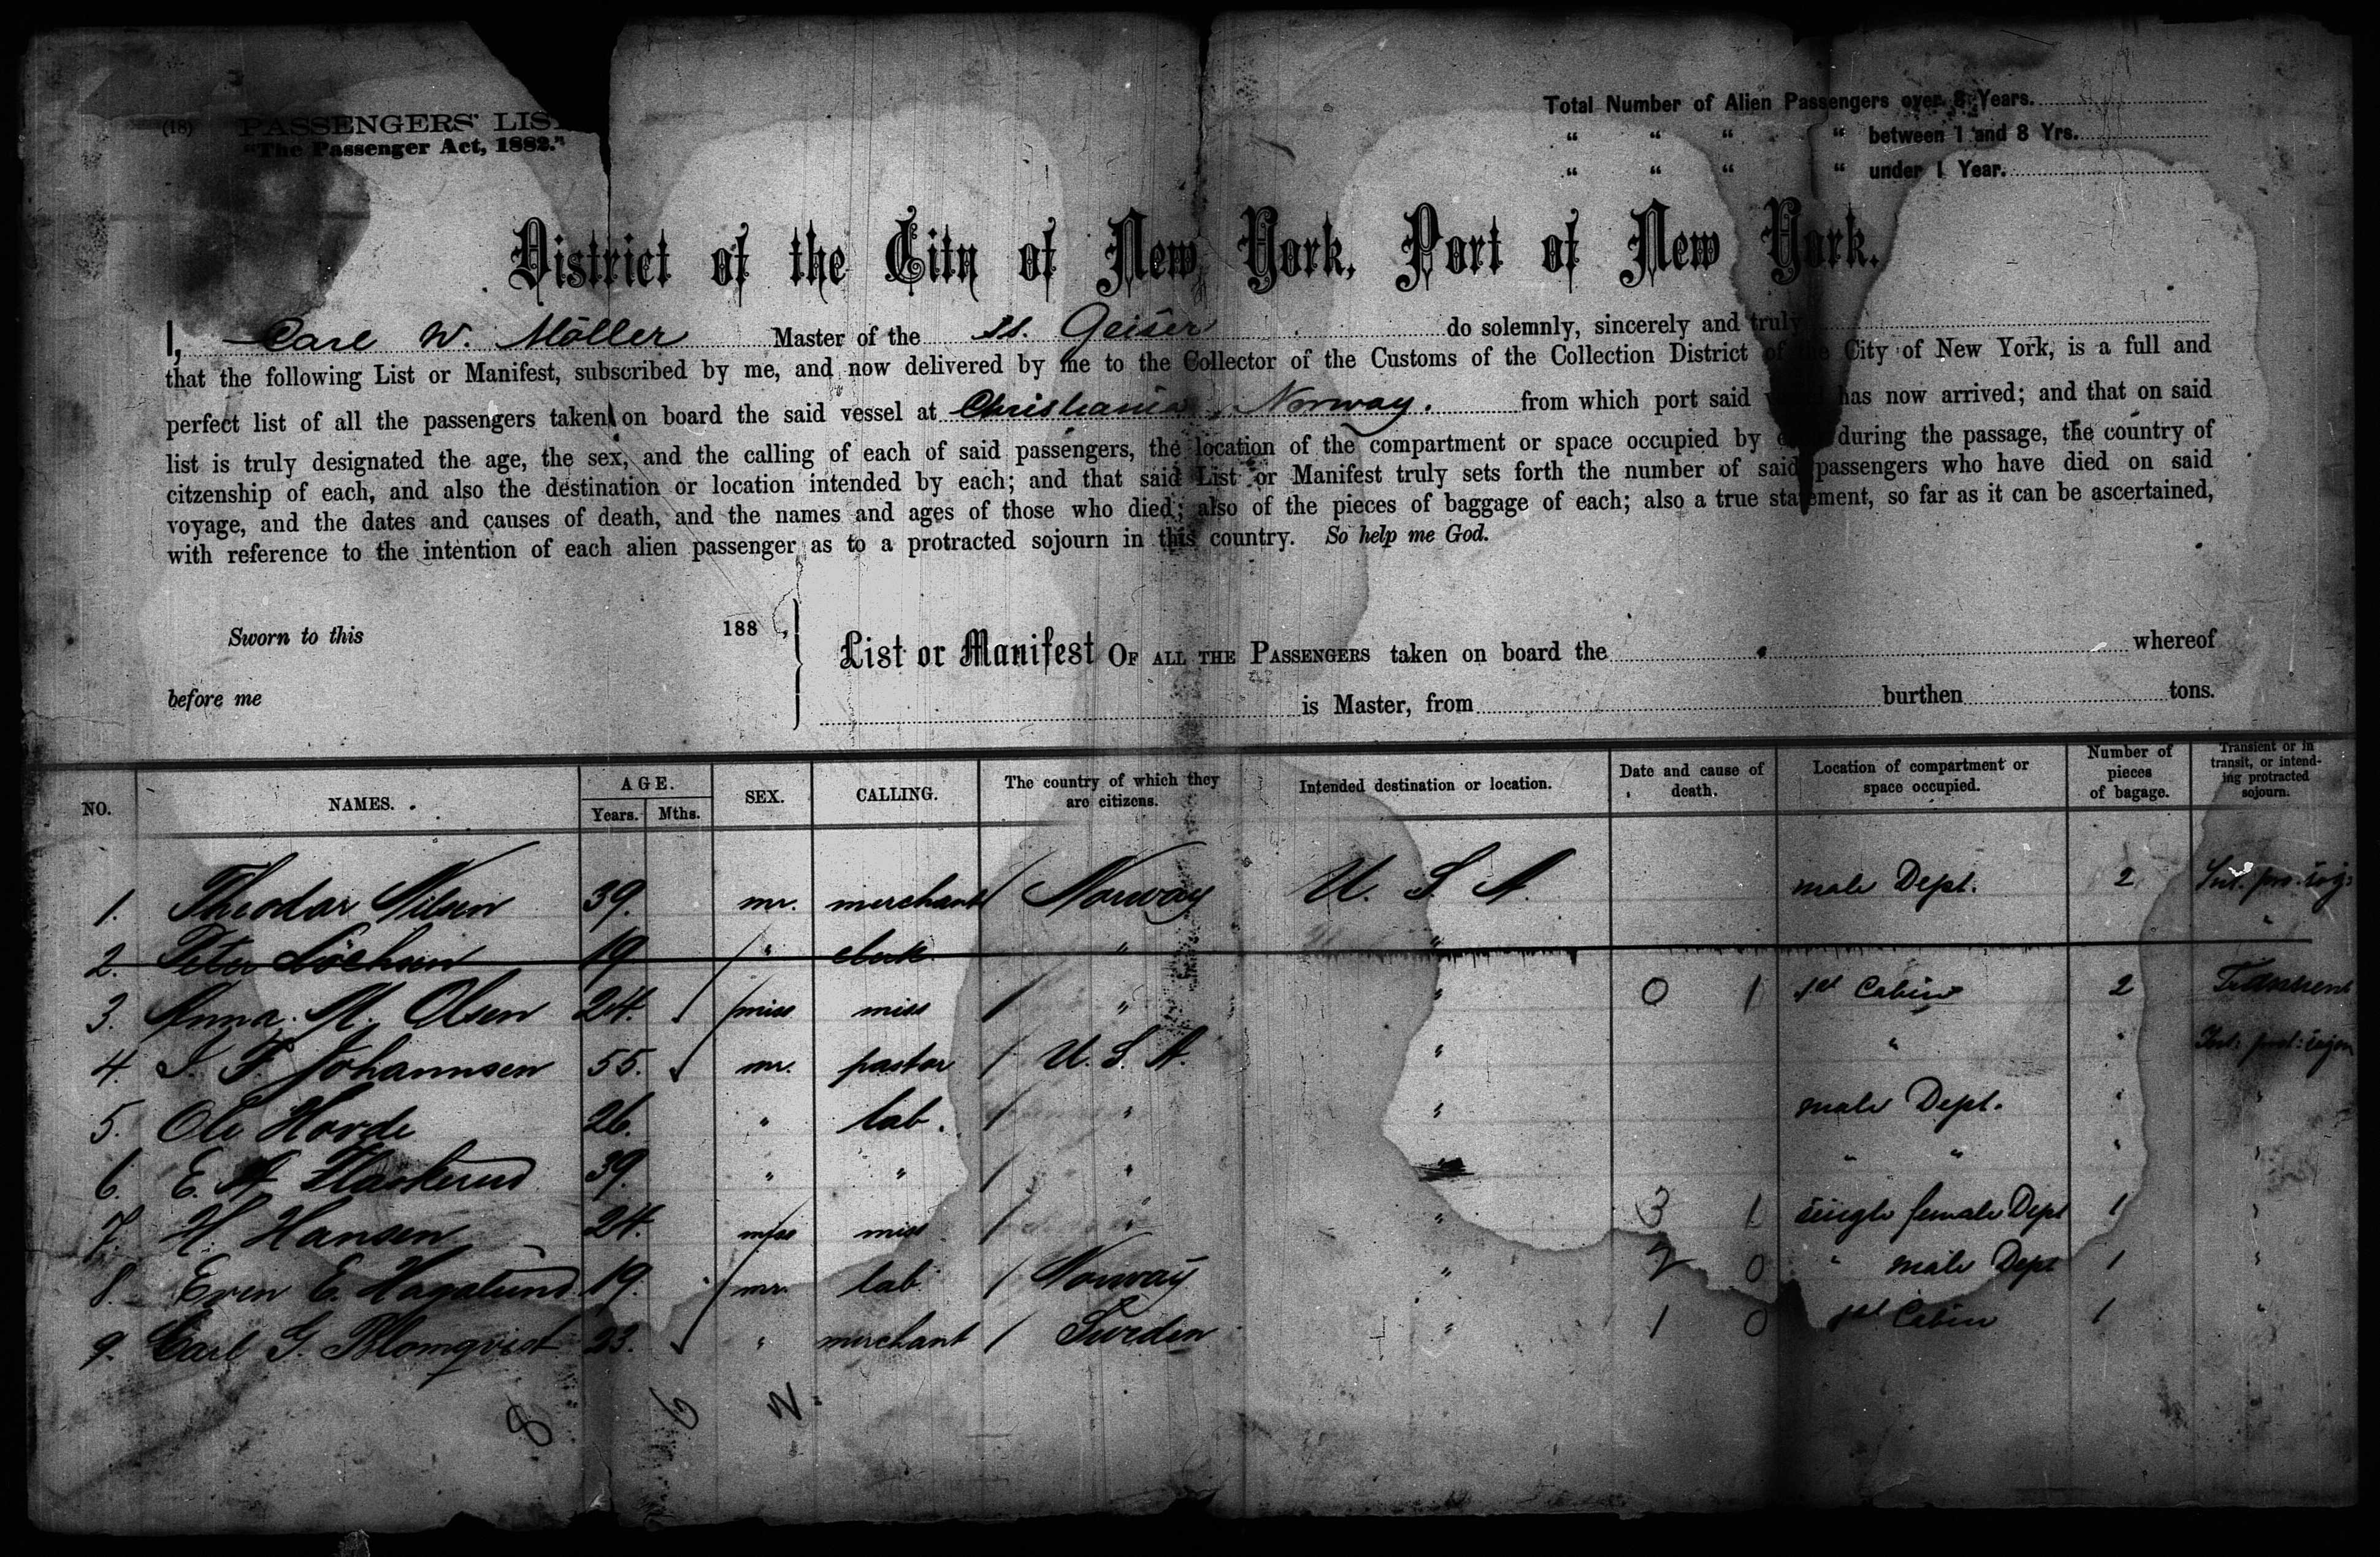 (18) PASSENGERS' LIS
"The Passenger Act, 1882."
Total Number of Alien Passengers over 8 Years.
" " " " between 1 and 8 Yrs.
" " " " under 1 Year.
District of the City of New York, Port of New York.
I, Carl W. Möller Master of the ss. Geiser do solemnly, sincerely and truly
that the following List or Manifest, subscribed by me, and now delivered by me to the Collector of the Customs of the Collection District of the City of New York, is a full and
perfect list of all the passengers taken on board the said vessel at Christiania, Norway. from which port said has now arrived; and that on said
list is truly designated the age, the sex, and the calling of each of said passengers, the location of the compartment or space occupied by during the passage, the country of
citzenship of each, and also the destination or location intended by each; and that said List or Manifest truly sets forth the number of said passengers who have died on said
voyage, and the dates and causes of death, and the names and ages of those who died; also of the pieces of baggage of each; also a true statement, so far as it can be ascertained,
with reference to the intention of each alien passenger as to a protracted sojourn in this country. So help me God.
Sworn to this 188 ,
before me
List or Manifest OF ALL THE PASSENGERS taken on board the whereof
is Master, from burthen tons.
NO. NAMES. AGE. Years. Mths. SEX. CALLING. The country of which they are citizens. Intended destination or location. Date and cause of death. Location of compartment or space occupied. Number of pieces of bagage. Transient or in transit, or intending protracted sojourn.
1. Theodor Nilsen 39. mr. merchant / Norway U. S. A. male Dept. 2
2. Peter 19 / " clerk " " "
3. Anna M. Olsen 24. / miss miss / " " 0 1 1st Cabin 2 Transient
4. J. F. Johannsen 55. mr. pastor / U. S. A. " " "
5. Ole Horde 26. " lab. / " " male Dept. " "
6. E. A. Flaskerud 39. " " / " " " " " "
7. H. Hansen 24. miss miss / " " 3 1 single female Dept 1 "
8. Even E. Hagelund 19. / mr. lab. / Norway " 2 0 " male Dept 1 "
9. Carl G. Blomqvist 23. " merchant / Sweden " 1 0 1st Cabin 1 "
8 6 2.